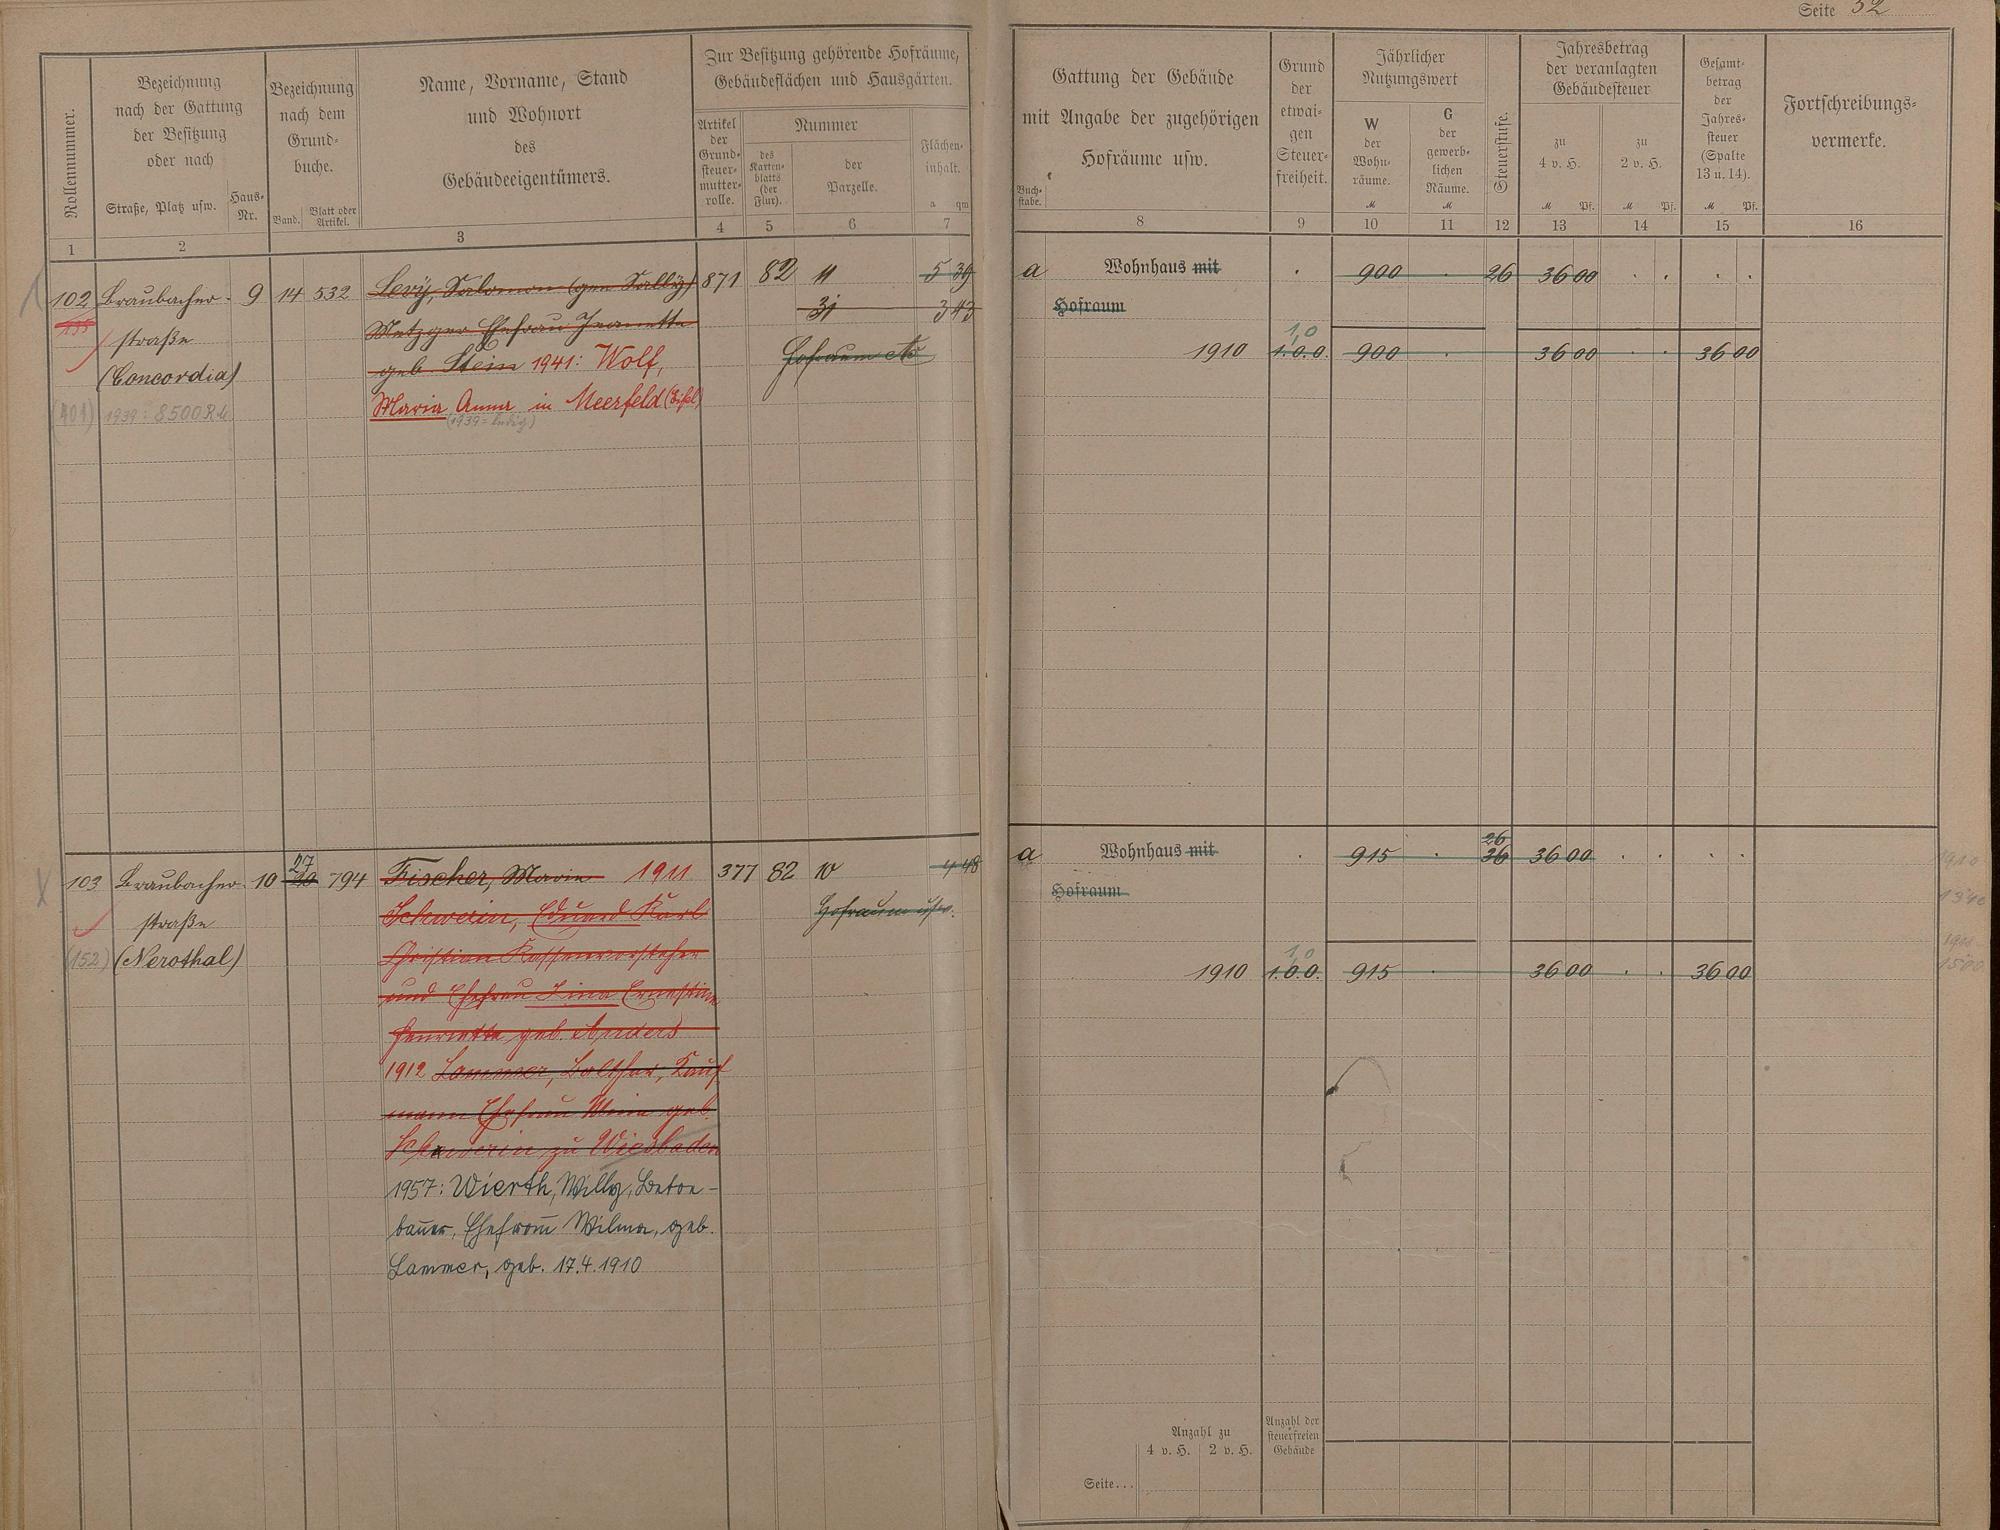 Seite 52
Rollennummer.
Bezeichnung
nach der Gattung
der Besitzung
oder nach
Straße, Platz usw.
Haus-
Nr.
Bezeichnung
nach dem
Grund-
buche.
Band.
Blatt oder
Artikel.
Name, Vorname, Stand
und Wohnort
des
Gebäudeeigentümers.
Zur Besitzung gehörende Hofräume,
Gebäudeflächen und Hausgärten.
Artikel
der
Grund-
steuer-
mutter-
rolle.
Nummer
des
Karten-
blatts
(der
Flur).
der
Parzelle.
Flächen-
inhalt.
a qm
1 2 3 4 5 6 7
102 Braubacher- 9 14 532 Levy, Salomon (gen Sally) 871 82 11 5 39
Metzger Ehefrau Jeanette 31 3 43
straße
geb. Stein 1941: Wolf, Hofraum
(Concordia)
Maria Anna in Meerfeld (Eifel)
(401) 1939: 8500 RM
(1939 = ledig)
103 Braubacher- 10 27 20 794 Fischer, Maria 1911 377 82 10 4 48
straße
Schwerin, Eduard Karl Hofraum usw.
(152) (Nerothal)
Christian Kassenvorsteher
und Ehefrau Lina Ernestine
Henriette geb. Anders
1912 Lammer, Balthar, Kauf
mann Ehefrau Mina geb.
Schwerin zu Wiesbaden
1957: Wierth, Willy, Beton-
bauer, Ehefrau Wilma, geb.
Lammer, geb. 17.4.1910
Buch-
stabe.
Gattung der Gebäude
mit Angabe der zugehörigen
Hofräume usw.
Grund
der
etwai-
gen
Steuer-
freiheit.
Jährlicher
Nutzungswert
W
der
Wohn-
räume.
M
G
der
gewerb-
lichen
Räume.
M
Steuerstufe.
Jahresbetrag
der veranlagten
Gebäudesteuer
zu
4 v. H.
M Pf.
zu
2 v. H.
M Pf.
Gesamt-
betrag
der
Jahres-
steuer
(Spalte
13 u. 14).
M Pf.
Fortschreibungs-
vermerke.
8 9 10 11 12 13 14 15 16
a Wohnhaus mit . 900 . 26 36 00 . . . .
Hofraum
1,0
1910 1.0.0. 900 . 36 00 . . 36 00
26
a Wohnhaus mit . 915 . 36 36 00 . . . .
Hofraum
1,0
1910 1.0.0. 915 . 36 00 . . 36 00
Anzahl zu
4 v. H. 2 v. H.
Anzahl der
steuerfreien
Gebäude
Seite...